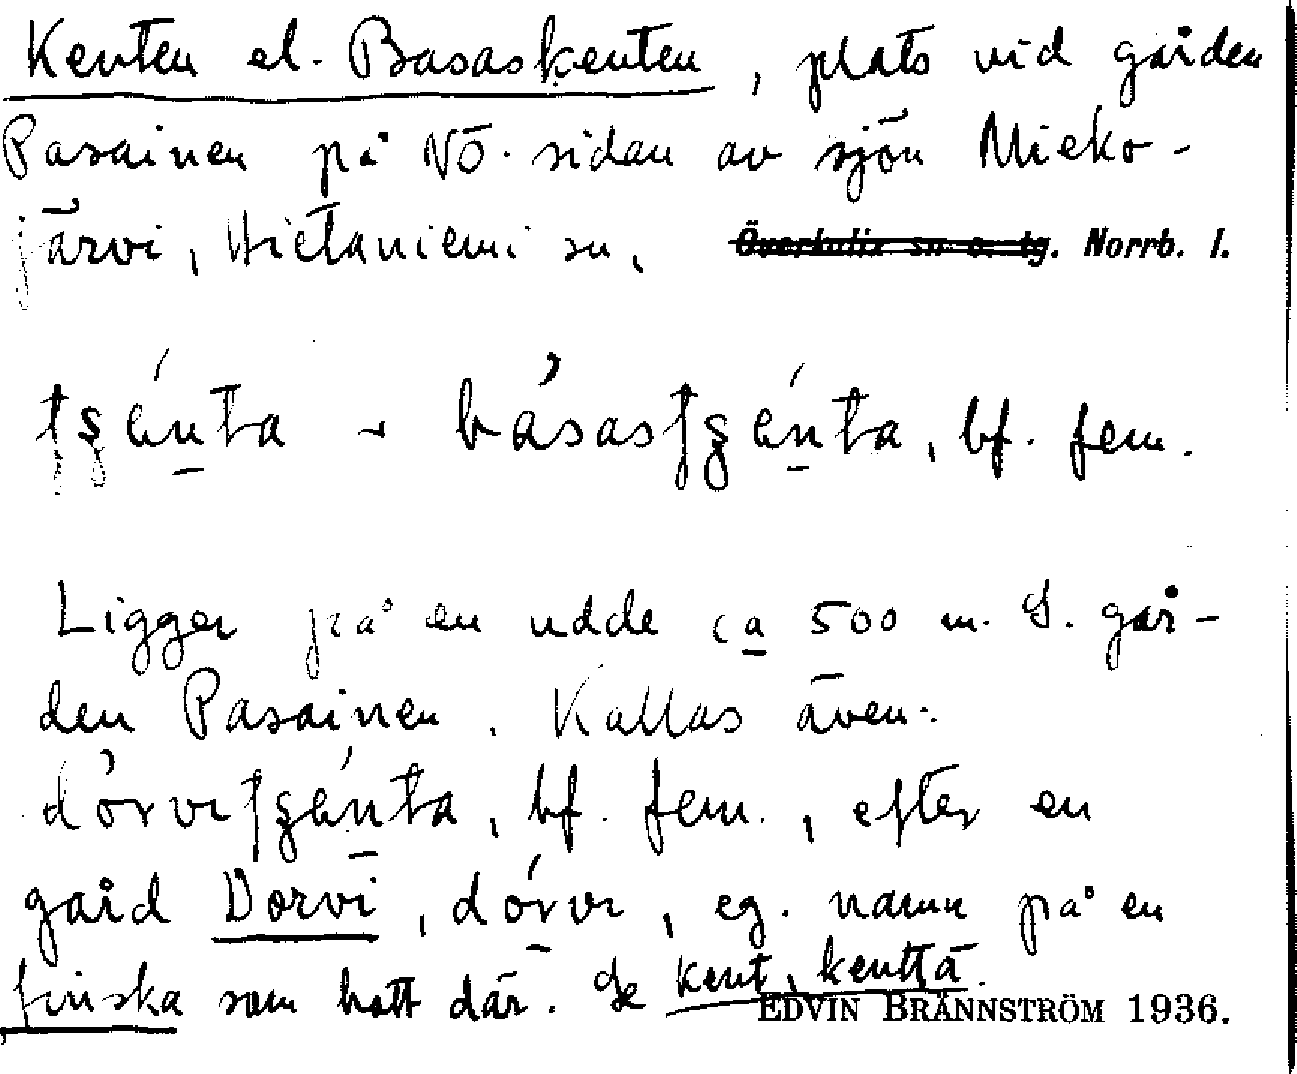 Kenten el. Basaskenten, plats vid gården
Pasainen på NÖ. sidan av sjön Mieko-
järvi, Hietaniemi sn, Överkalix sn o. tg. Norrb. l.
tşénta ~ básastşénta, bf. fem.
Ligger på en udde ca 500 m. S. går-
den Pasainen. Kallas även:
dórvıtşénta, bf. fem., efter en
gård Dorvi, dórvı, eg. namn på en
finska som bott där. Se kent, kenttä.
EDVIN BRÄNNSTRÖM 1936.